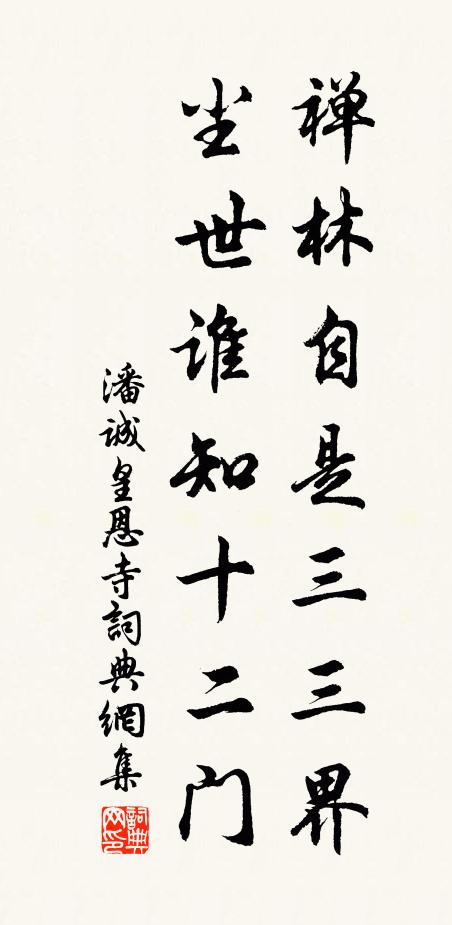 禅林自是三三界
尘世谁知十二门
潘诚皇恩寺詞典網集
詞典网印